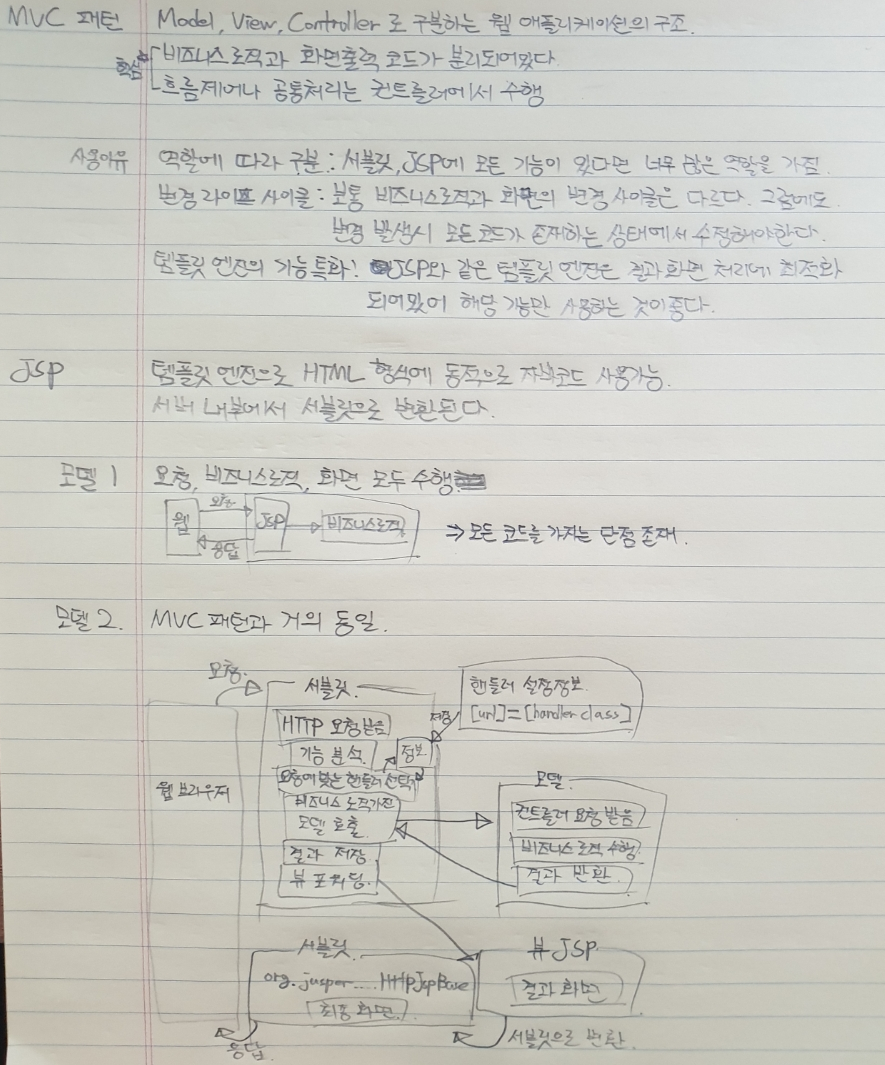 MVC 패턴 Model, View, Controller 로 구분하는 웹 애플리케이션의 구조.
핵심 비즈니스로직과 화면출력 코드가 분리되어있다.
흐름제어나 공통처리는 컨트롤러에서 수행
사용이유 역할에 따라 구분 : 서블릿, JSP에 모든 기능이 있다면 너무 많은 역할을 가짐.
변경 라이프 사이클 : 보통 비즈니스로직과 화면의 변경 사이클은 다르다. 그럼에도
변경 발생시 모든코드가 존재하는 상태에서 수정해야한다.
템플릿 엔진의 기능특화! JSP와 같은 템플릿 엔진은 결과화면 처리에 최적화
되어있어 해당 기능만 사용하는 것이 좋다.
JSP 템플릿 엔진으로 HTML 형식에 동적으로 자바코드 사용가능.
서버 내부에서 서블릿으로 변환된다.
모델 1 요청, 비즈니스로직, 화면 모두 수행.
요청
웹 JSP 비즈니스로직 ⇒ 모든 코드를 가지는 단점 존재.
응답
모델 2. MVC 패턴과 거의 동일.
요청.
서블릿.
핸들러 설정정보.
[url]=[handler class]
저장
HTTP 요청받음
기능 분석. 정보.
요청에 맞는 핸들러 선택
웹 브라우저
비즈니스 로직가진
모델 호출.
결과 저장.
뷰 포워딩.
모델.
컨트롤러 요청 받음
비즈니스로직 수행.
결과 반환.
서블릿
org.jasper.....HttpJspBase
최종 화면.
뷰 JSP
결과 화면
응답
서블릿으로 변환.